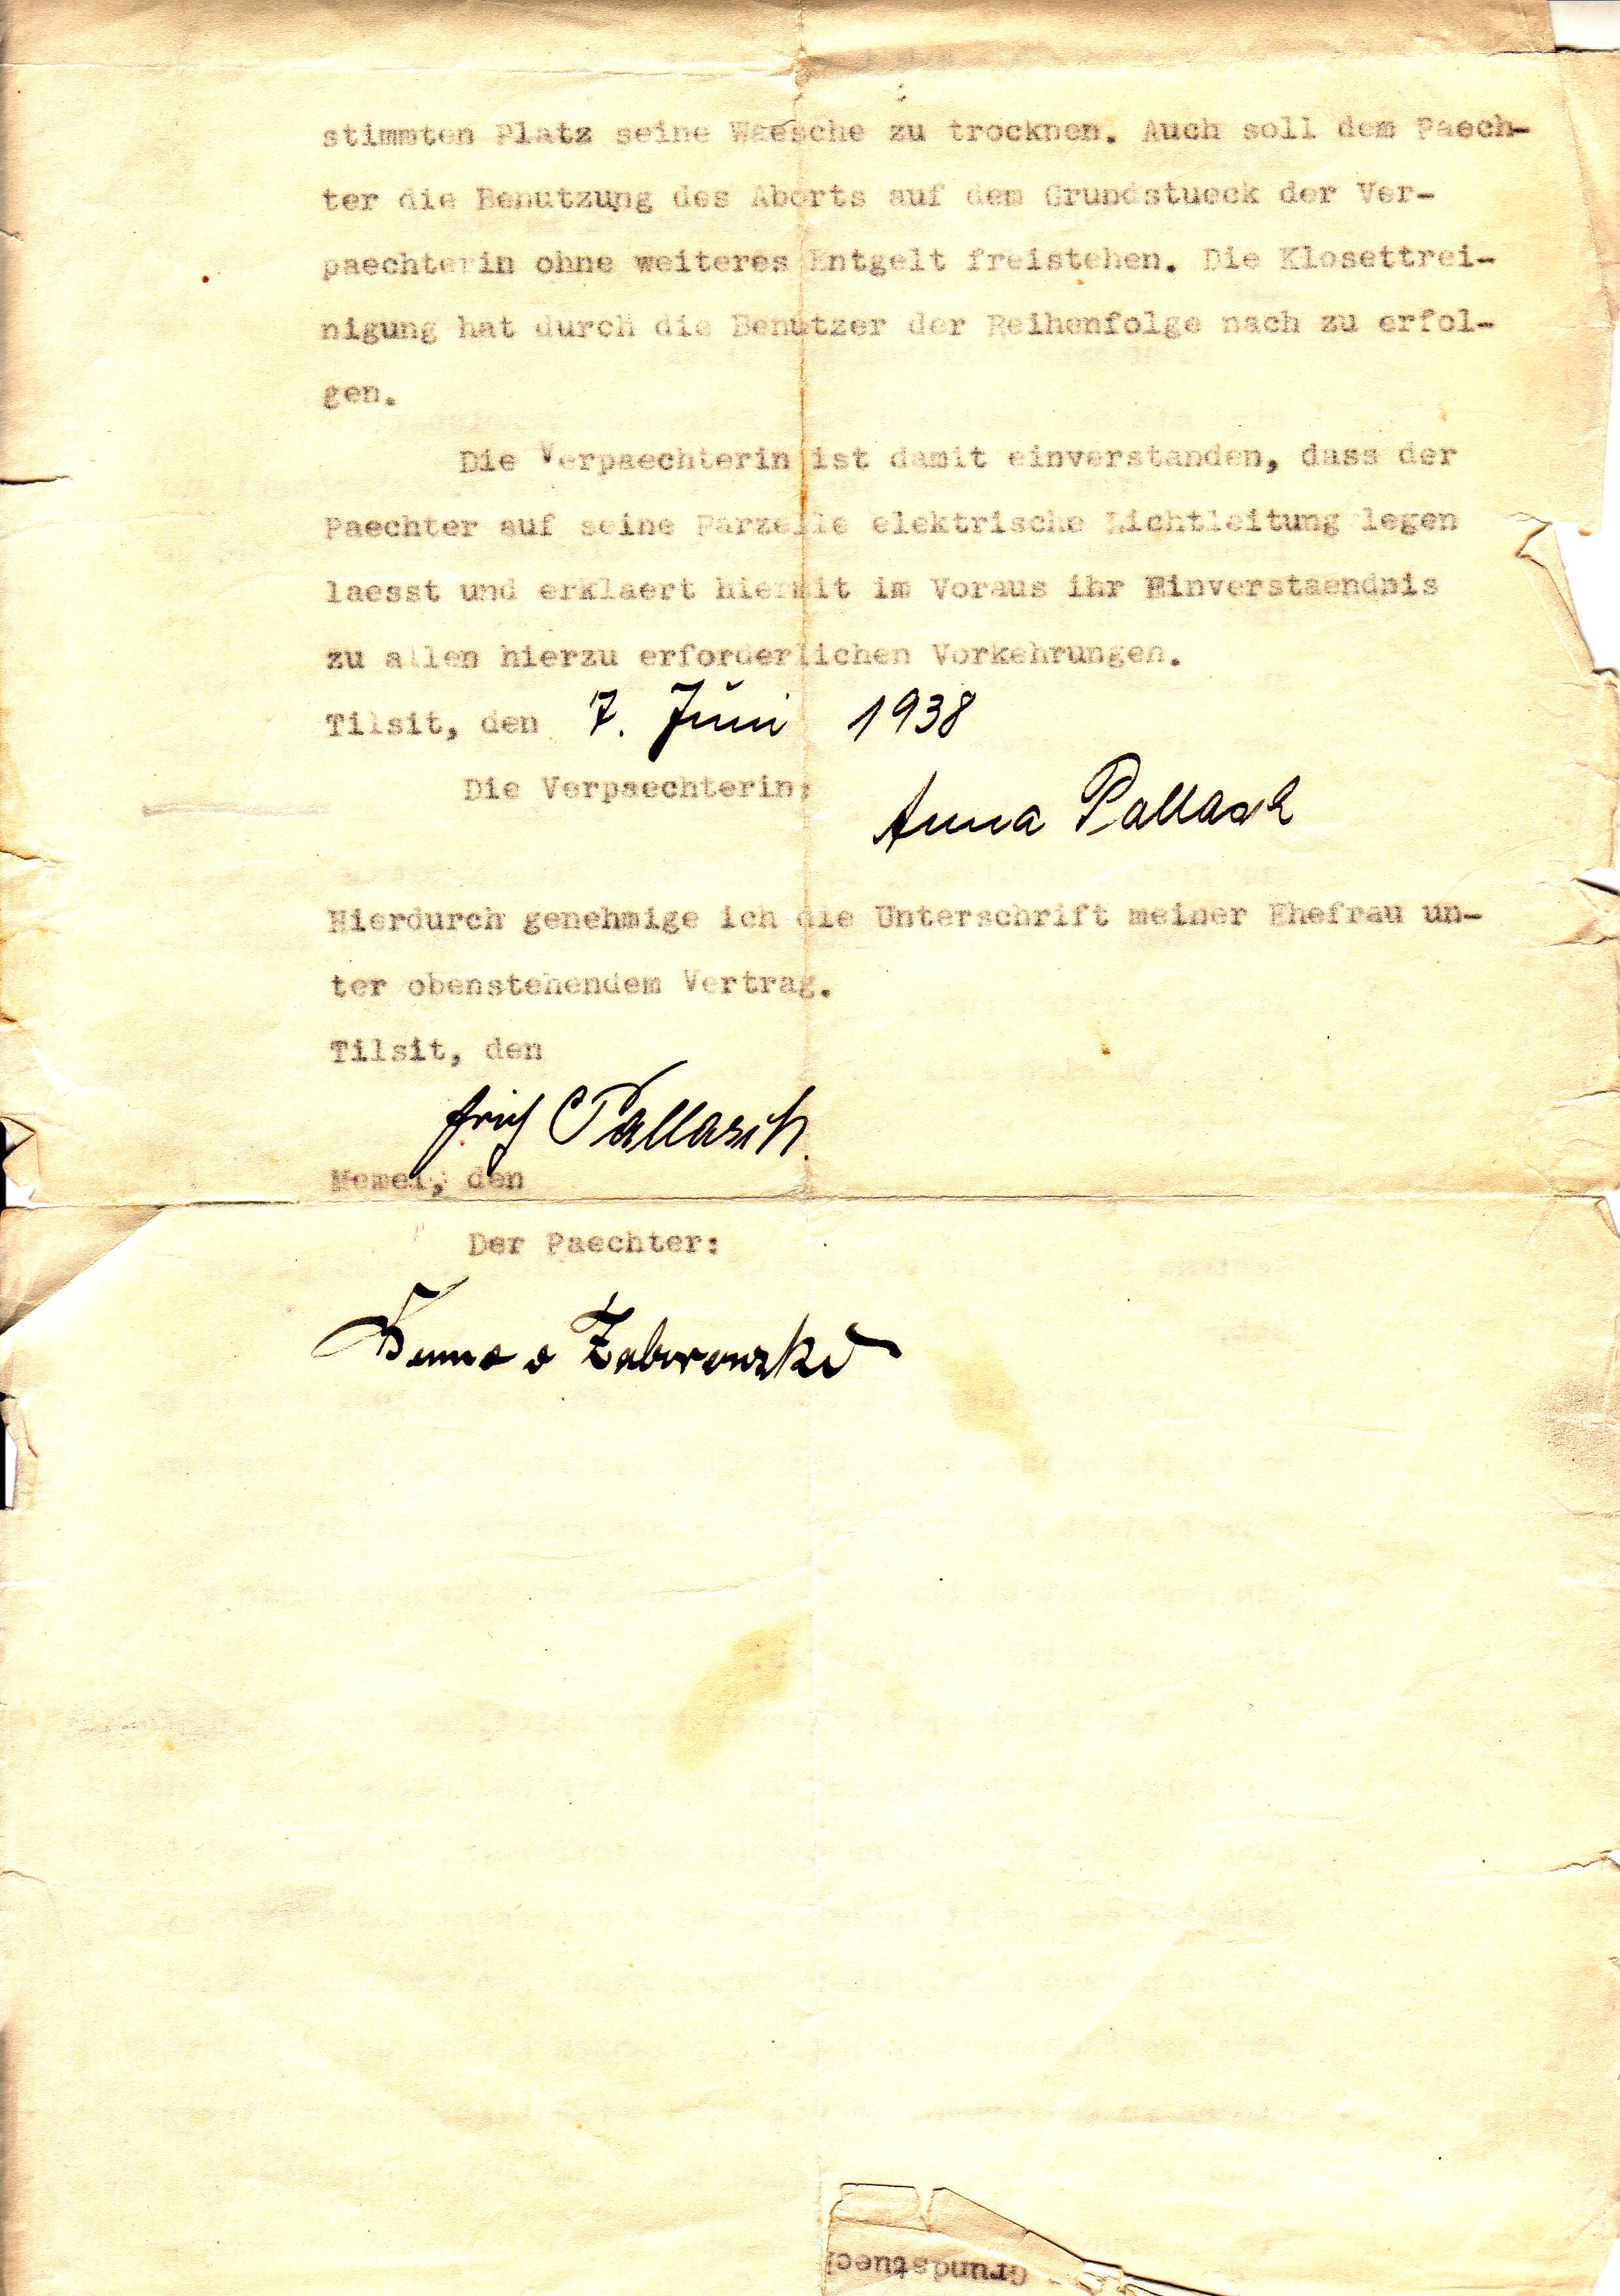 stimmten Platz seine Waesche zu trocknen. Auch soll dem Paech-
ter die Benutzung des Aborts auf dem Grundstueck der Ver-
paechterin ohne weiteres Entgelt freistehen. Die Klosettrei-
nigung hat durch die Benutzer der Reihenfolge nach zu erfol-
gen.
Die Verpaechterin ist damit einverstanden, dass der
Paechter auf seine Parzelle elektrische Lichtleitung legen
laesst und erklaert hiermit im Voraus ihr Einverstaendnis
zu allen hierzu erforderlichen Vorkehrungen.
Tilsit, den 7. Juni 1938
Die Verpaechterin:
Anna Pallasch
Hierdurch genehmige ich die Unterschrift meiner Ehefrau un-
ter obenstehendem Vertrag.
Tilsit, den
Erich Pallasch.
Memel, den
Der Paechter:
Grundstueck